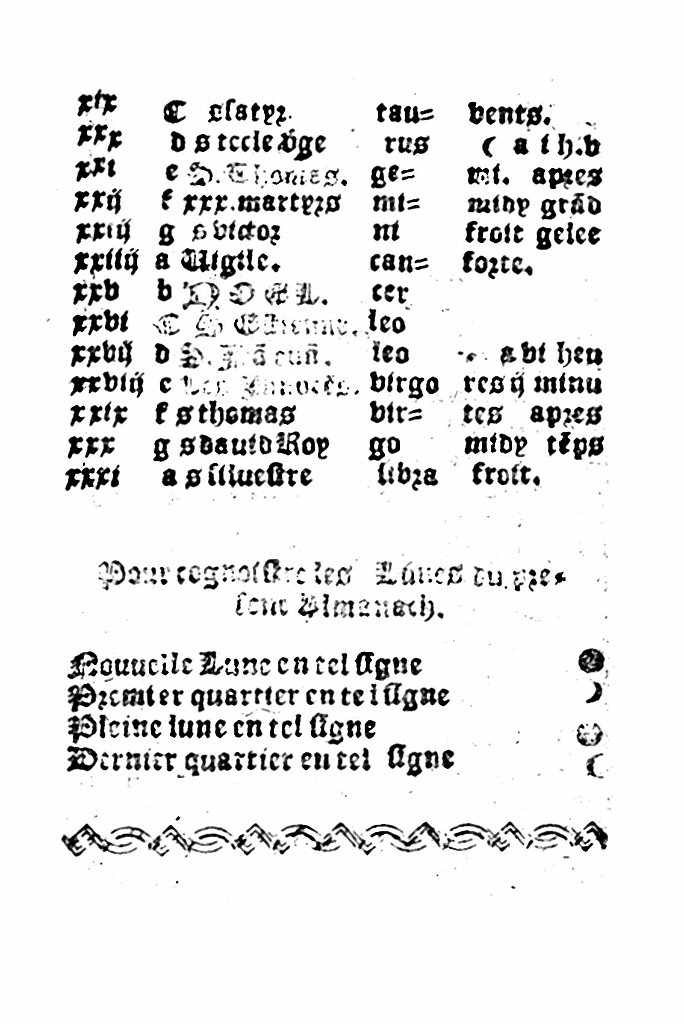 xix C s satyr tau= vents.
xxx d s teele vȷ̃ge rus ☾ a i h.v
xxi e S. Thomas. ge= mi. apres
xxij f xxx.martyrs mi= midy grãd
xxiij g s victor ni froit gelee
xxiiij a Uigile. can= forte.
xxv b NOEL. cer
xxvi C S Estienne. leo
xxvij d S. leo a vi heu
xxviij e Les Innocẽs. virgo res ij minu
xxix f s thomas vir= tes apres
xxx g s dauid Roy go midy tẽps
xxxi a s siluestre libra froit.
Pour cognoistre les Lunes du pre=
sent Almanach.
Nouuelle Lune en tel signe
Premier quartier en tel signe
Pleine lune en tel signe
Dernier quartier en tel signe